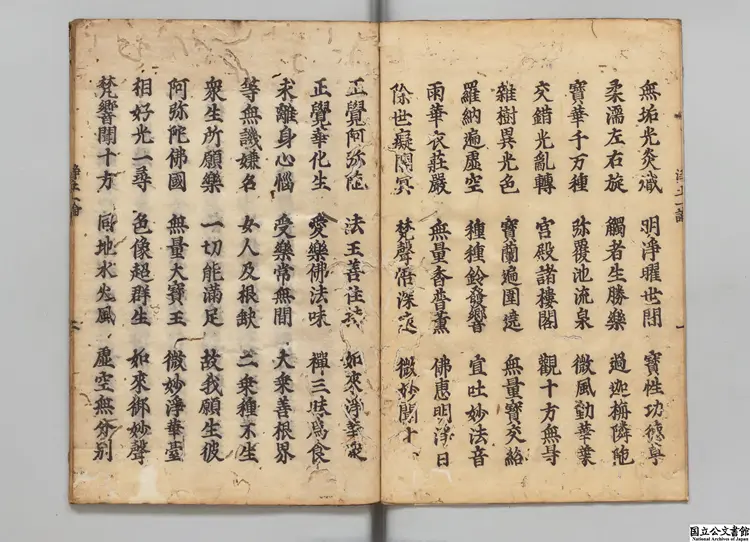 無垢光炎熾 明淨曜世間 寶性功德草
柔濡左右旋 觸者生勝樂 過迦栴隣陀
寶華千万種 弥覆池流泉 微風動華葉
交錯光亂轉 宮殿諸樓閣 觀十方無㝵
雜樹異光色 寶蘭遍圍遶 無量寶交絡
羅網遍虛空 種種鈴發響 宣吐妙法音
雨華衣莊嚴 無量香普薰 佛惠明淨日
除世癡闇冥 梵聲悟深遠 微妙聞十
正覺阿弥陀 法王善住持 如來淨華衆
正覺華化生 愛樂佛法味 禪三昧爲食
永離身心惱 受樂常無間 大乘善根界
等無譏嫌名 女人及根缺 二乘種不生
衆生所願樂 一切能滿足 故我願生彼
阿弥陀佛國 無量大寶王 微妙淨華臺
相好光一尋 色像超群生 如來微妙聲
梵響聞十方 同地水火風 虛空無分別
国立公文書館
National Archives of Japan